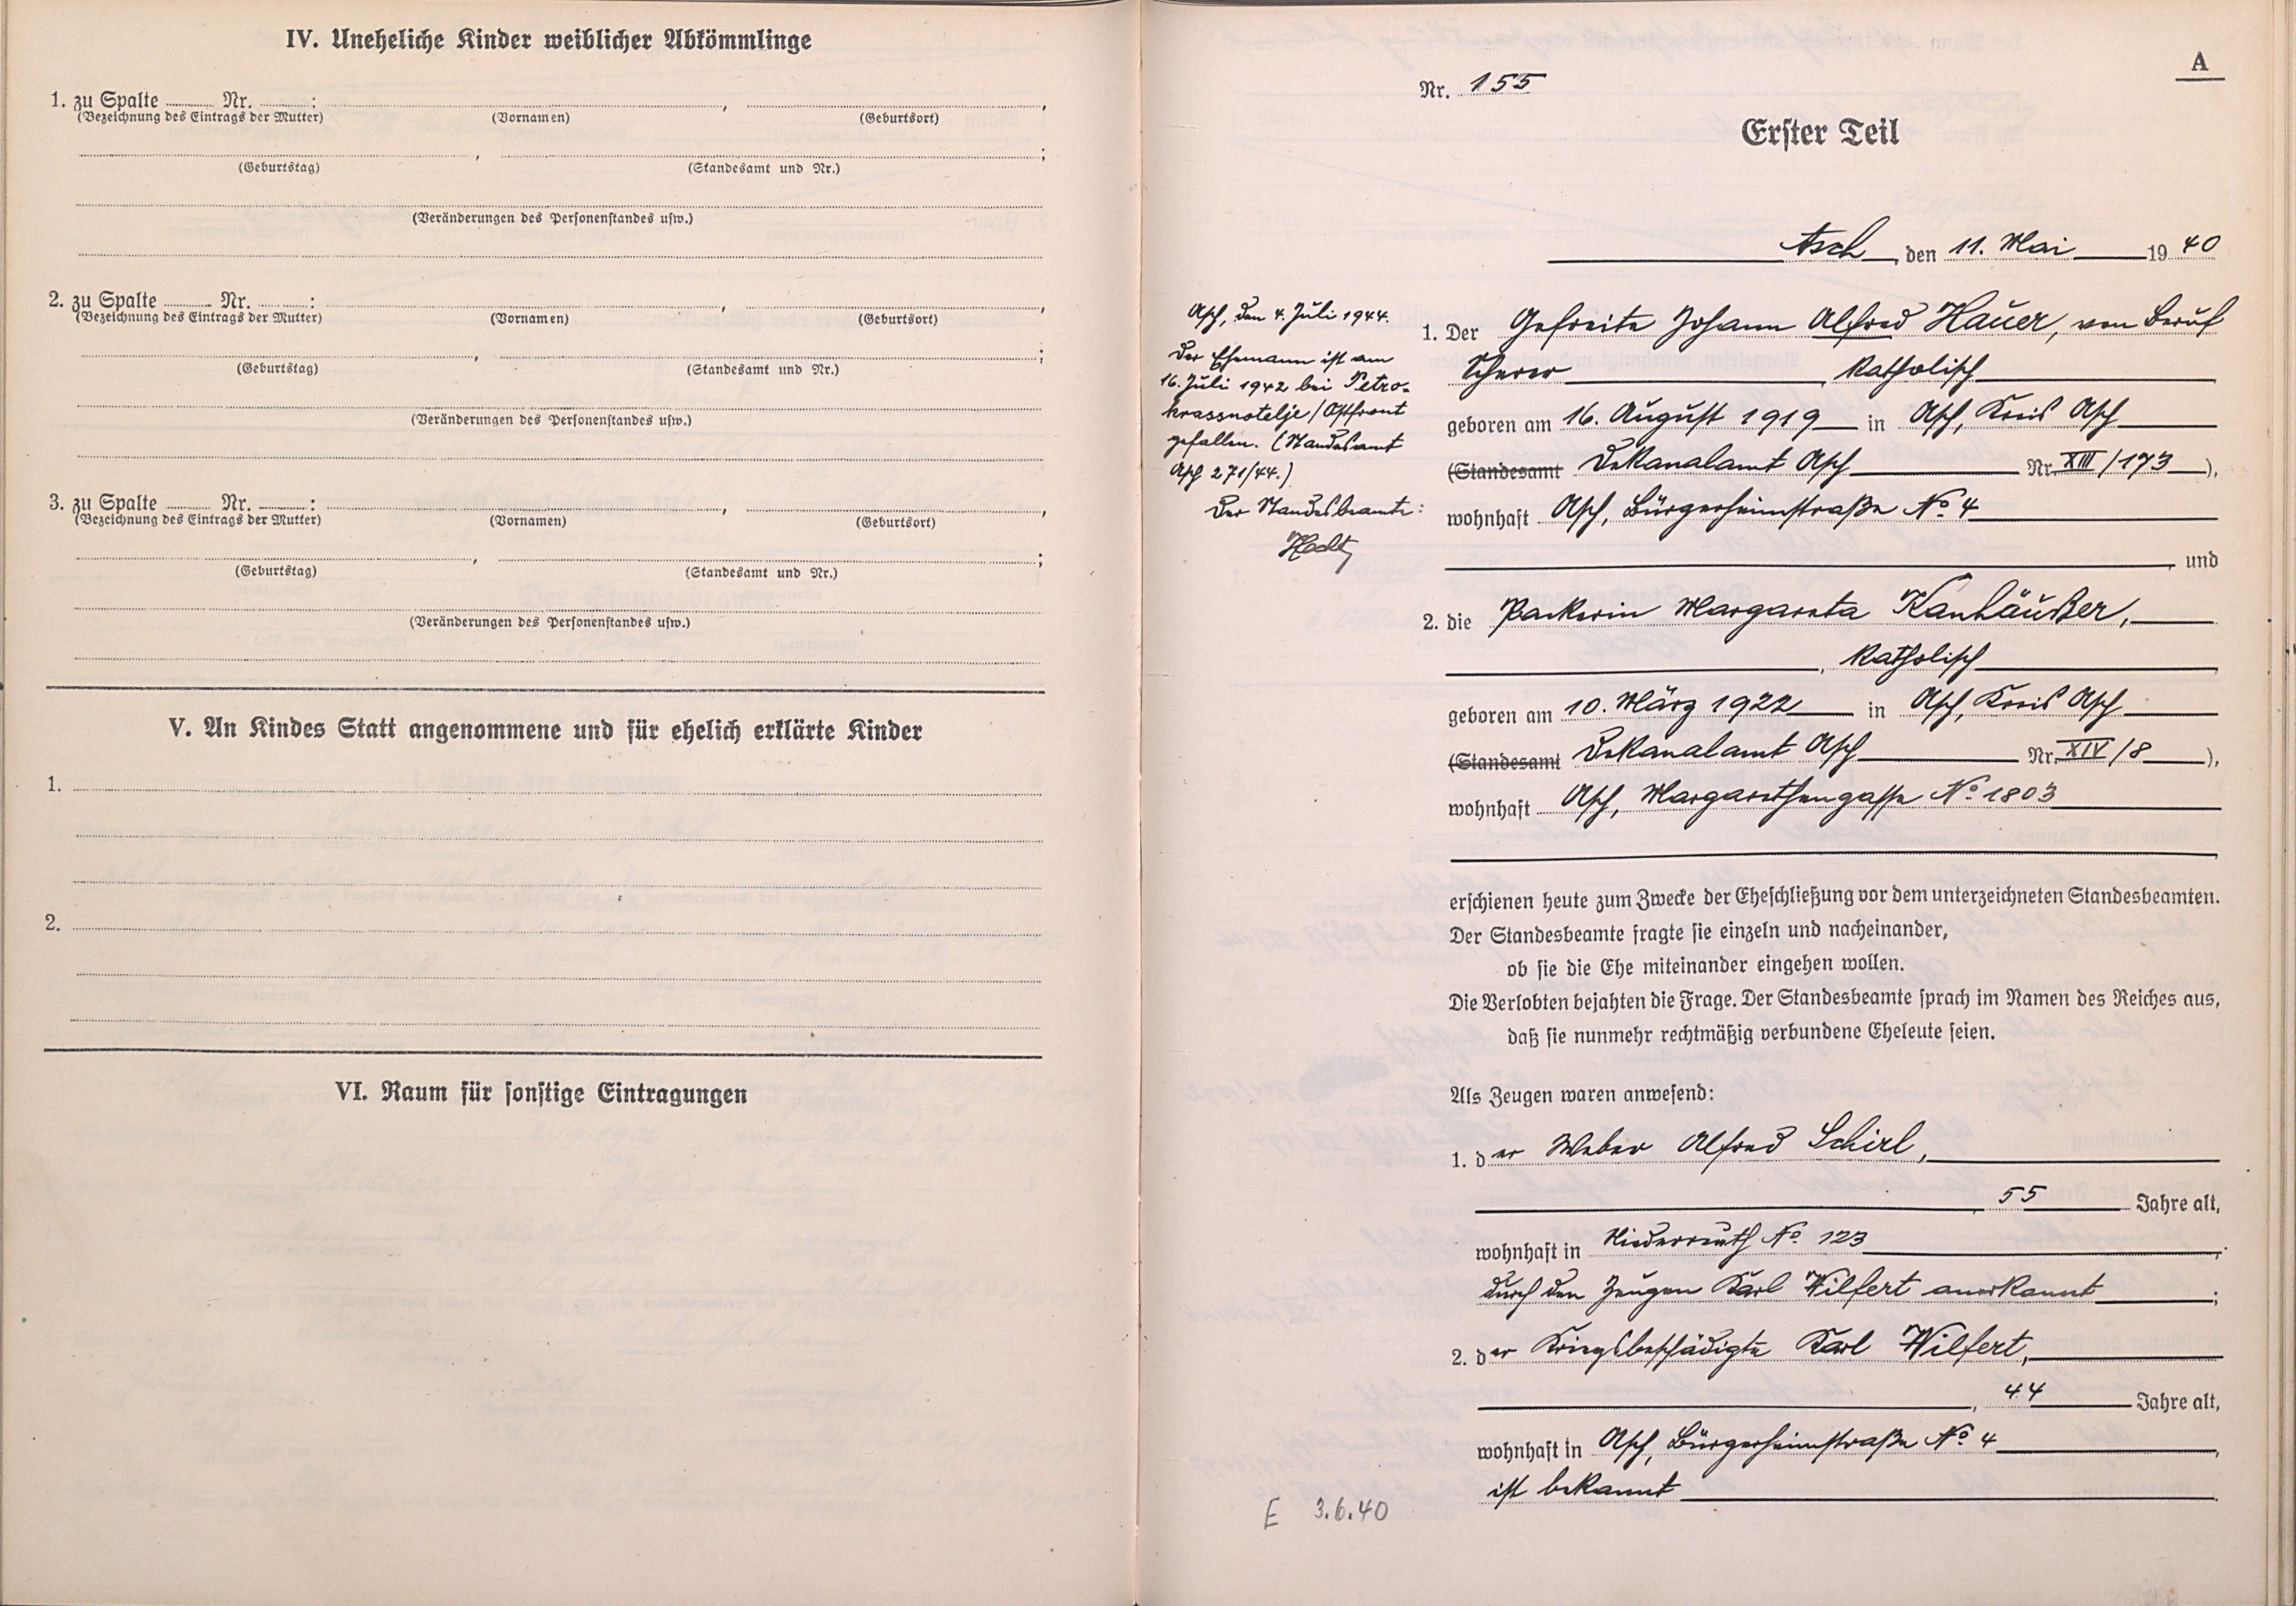 IV. Uneheliche Kinder weiblicher Abkömmlinge
1. zu Spalte ........ Nr. ........: ........, ........,
(Bezeichnung des Eintrags der Mutter) (Vornamen) (Geburtsort)
........, ........;
(Geburtstag) (Standesamt und Nr.)
(Veränderungen des Personenstandes usw.)
2. zu Spalte ........ Nr. ........: ........, ........,
(Bezeichnung des Eintrags der Mutter) (Vornamen) (Geburtsort)
........, ........;
(Geburtstag) (Standesamt und Nr.)
(Veränderungen des Personenstandes usw.)
3. zu Spalte ........ Nr. ........: ........, ........,
(Bezeichnung des Eintrags der Mutter) (Vornamen) (Geburtsort)
........, ........;
(Geburtstag) (Standesamt und Nr.)
(Veränderungen des Personenstandes usw.)
V. An Kindes Statt angenommene und für ehelich erklärte Kinder
1.
2.
VI. Raum für sonstige Eintragungen
A
Nr. 155
Erster Teil
Asch, den 11. Mai 1940
Asch, den 4. Juli 1944.
Der Ehemann ist am
16. Juli 1942 bei Petro-
krassnotelje/Ostfront
gefallen. (Standesamt
Asch 271/44.)
Der Standesbeamte:
1. Der Gefreite Johann Alfred Hauer, von Beruf
Scherer, katholisch
geboren am 16. August 1919 in Asch, Kreis Asch
(Standesamt Dekanalamt Asch Nr. XIII/173),
wohnhaft Asch, Bürgerheimstraße No. 4
, und
2. die Packerin Margareta Kanhäußer,
, katholisch
geboren am 10. März 1922 in Asch, Kreis Asch
(Standesamt Dekanalamt Asch Nr. XIV/8),
wohnhaft Asch, Margarethengasse No. 1803
erschienen heute zum Zwecke der Eheschließung vor dem unterzeichneten Standesbeamten.
Der Standesbeamte fragte sie einzeln und nacheinander,
ob sie die Ehe miteinander eingehen wollen.
Die Verlobten bejahten die Frage. Der Standesbeamte sprach im Namen des Reiches aus,
daß sie nunmehr rechtmäßig verbundene Eheleute seien.
Als Zeugen waren anwesend:
1. der Weber Alfred Schirl,
, 55 Jahre alt,
wohnhaft in Niederreuth No. 123,
durch den Zeugen Karl Wilfert anerkannt;
2. der Kriegsbeschädigte Karl Wilfert,
, 44 Jahre alt,
wohnhaft in Asch, Bürgerheimstraße No. 4,
ist bekannt.
E 3.6.40